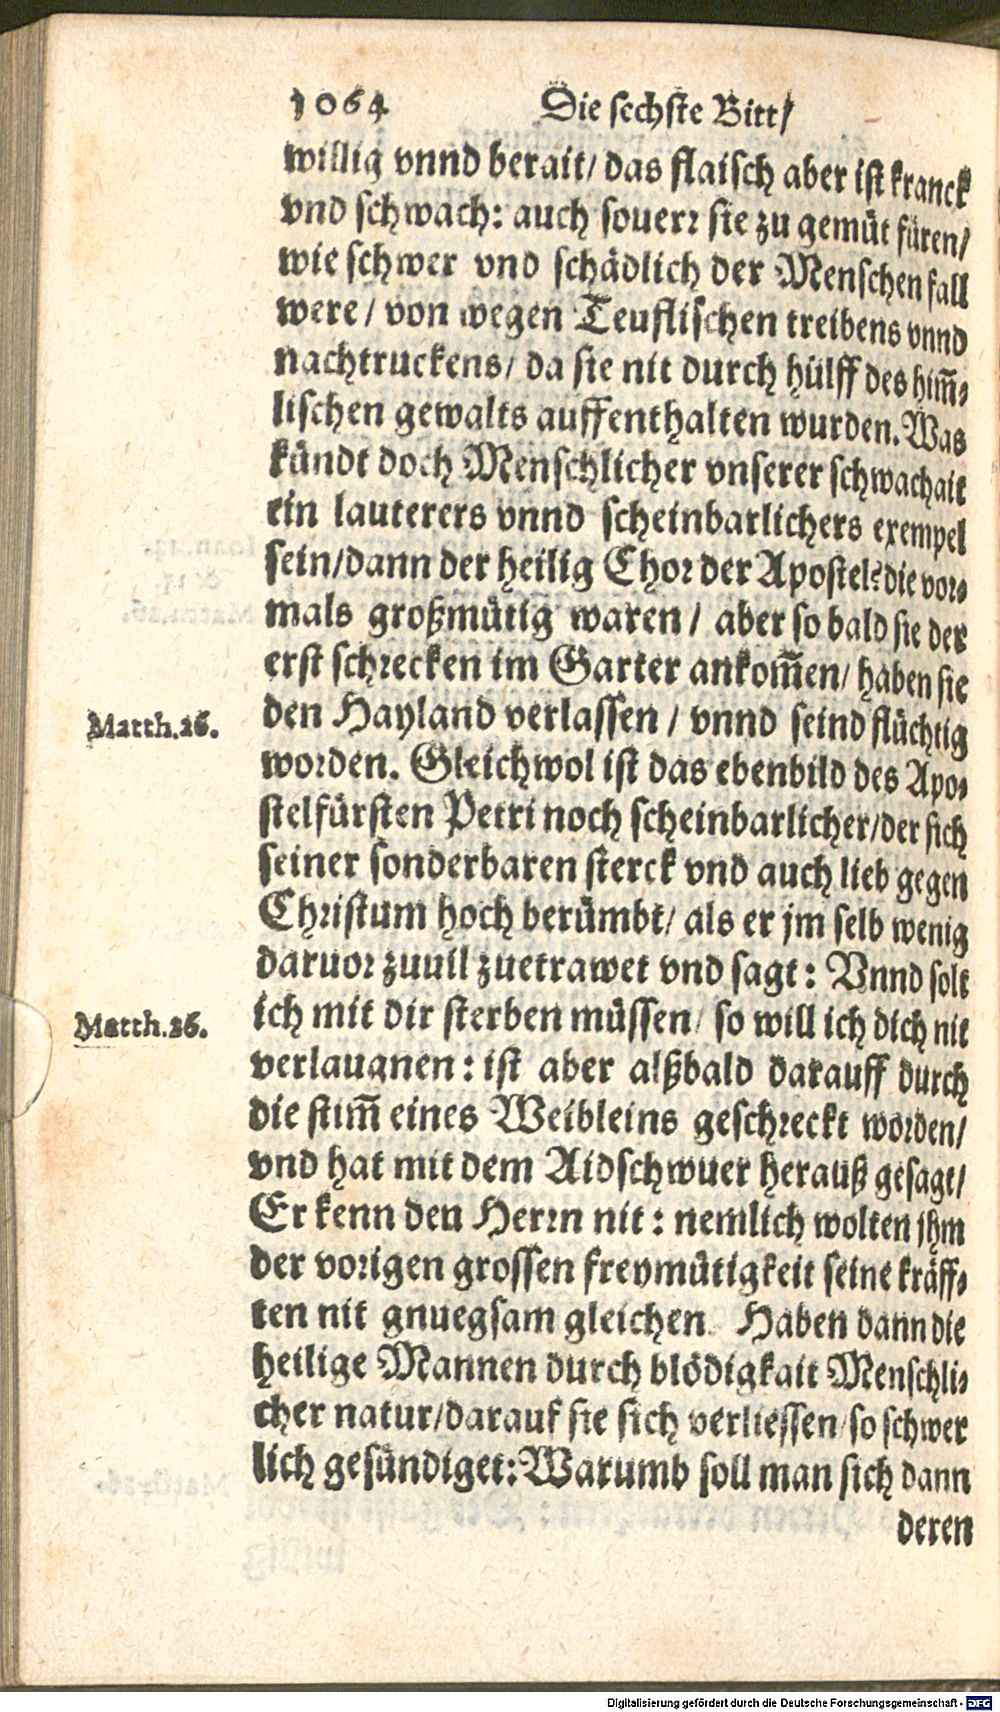 1064 Die sechste Bitt/
willig vnnd berait/ das flaisch aber ist kranck
vnd schwach: auch souerr sie zu gemüt füren/
wie schwer vnd schädlich der Menschen fall
were/ von wegen Teuflischen treibens vnnd
nachtruckens/ da sie nit durch hülff des him̃-
lischen gewalts auffenthalten wurden. Was
kündt doch Menschlicher vnserer schwachait
ein lauterers vnnd scheinbarlichers exempel
sein/ dann der heilig Chor der Apostel? die vor-
mals großmütig waren/ aber so bald sie der
erst schrecken im Garter ankom̃en/ haben sie
Matth.26. den Hayland verlassen/ vnnd seind flüchtig
worden. Gleichwol ist das ebenbild des Apo-
stelfürsten Petri noch scheinbarlicher/ der sich
seiner sonderbaren sterck vnd auch lieb gegen
Christum hoch berümbt/ als er jm selb wenig
daruor zuuil zuetrawet vnd sagt: Vnnd solt
Matth.26. ich mit dir sterben müssen/ so will ich dich nit
verlaugnen: ist aber alßbald darauff durch
die stim̃ eines Weibleins geschreckt worden/
vnd hat mit dem Aidschwuer herauß gesagt/
Er kenn den Herrn nit: nemlich wolten jhm
der vorigen grossen freymütigkeit seine kräff-
ten nit gnuegsam gleichen. Haben dann die
heilige Mannen durch blödigkait Menschli-
cher natur/ darauf sie sich verliessen/ so schwer
lich gesündiget: Warumb soll man sich dann
deren
Digitalisierung gefördert durch die Deutsche Forschungsgemeinschaft - DFG